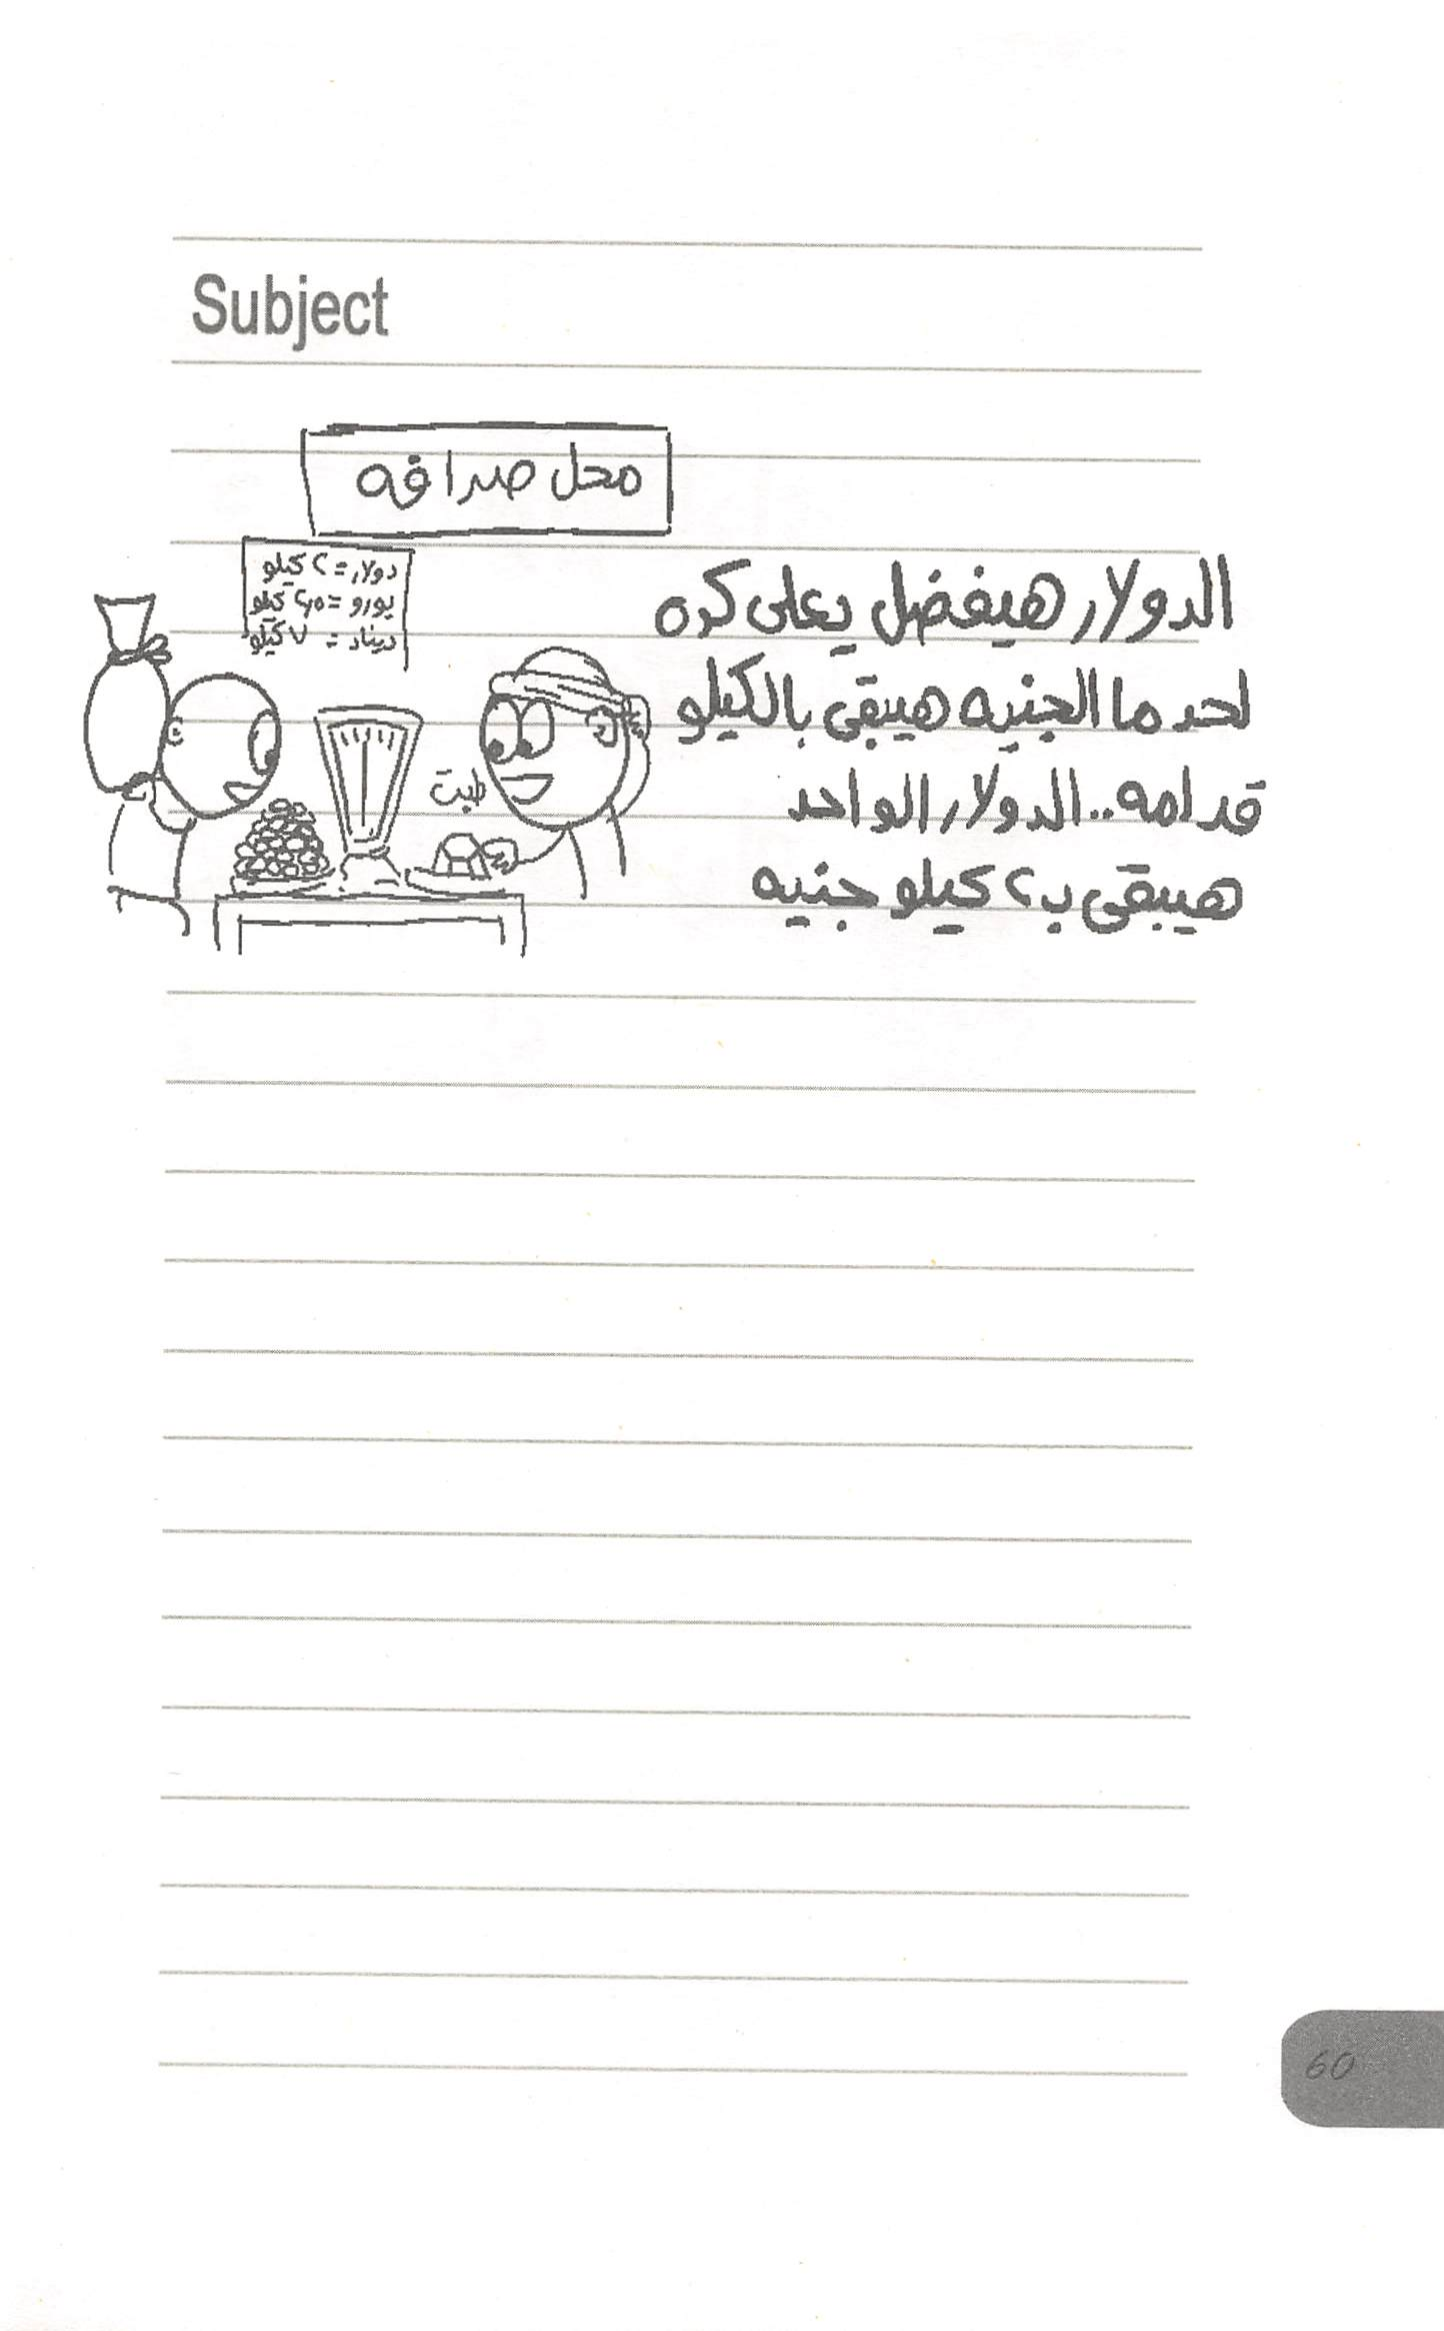 Subject
محل صرافه
دولار = ٢ كيلو
يورو = ٢٫٥ كيلو
دينار = ٧ كيلو
الدولار هيفضل يعلى كده
لحد ما الجنيه هيبقى بالكيلو
قدامه.. الدولار الواحد
هيبقى ب٢ كيلو جنيه
طبت
60